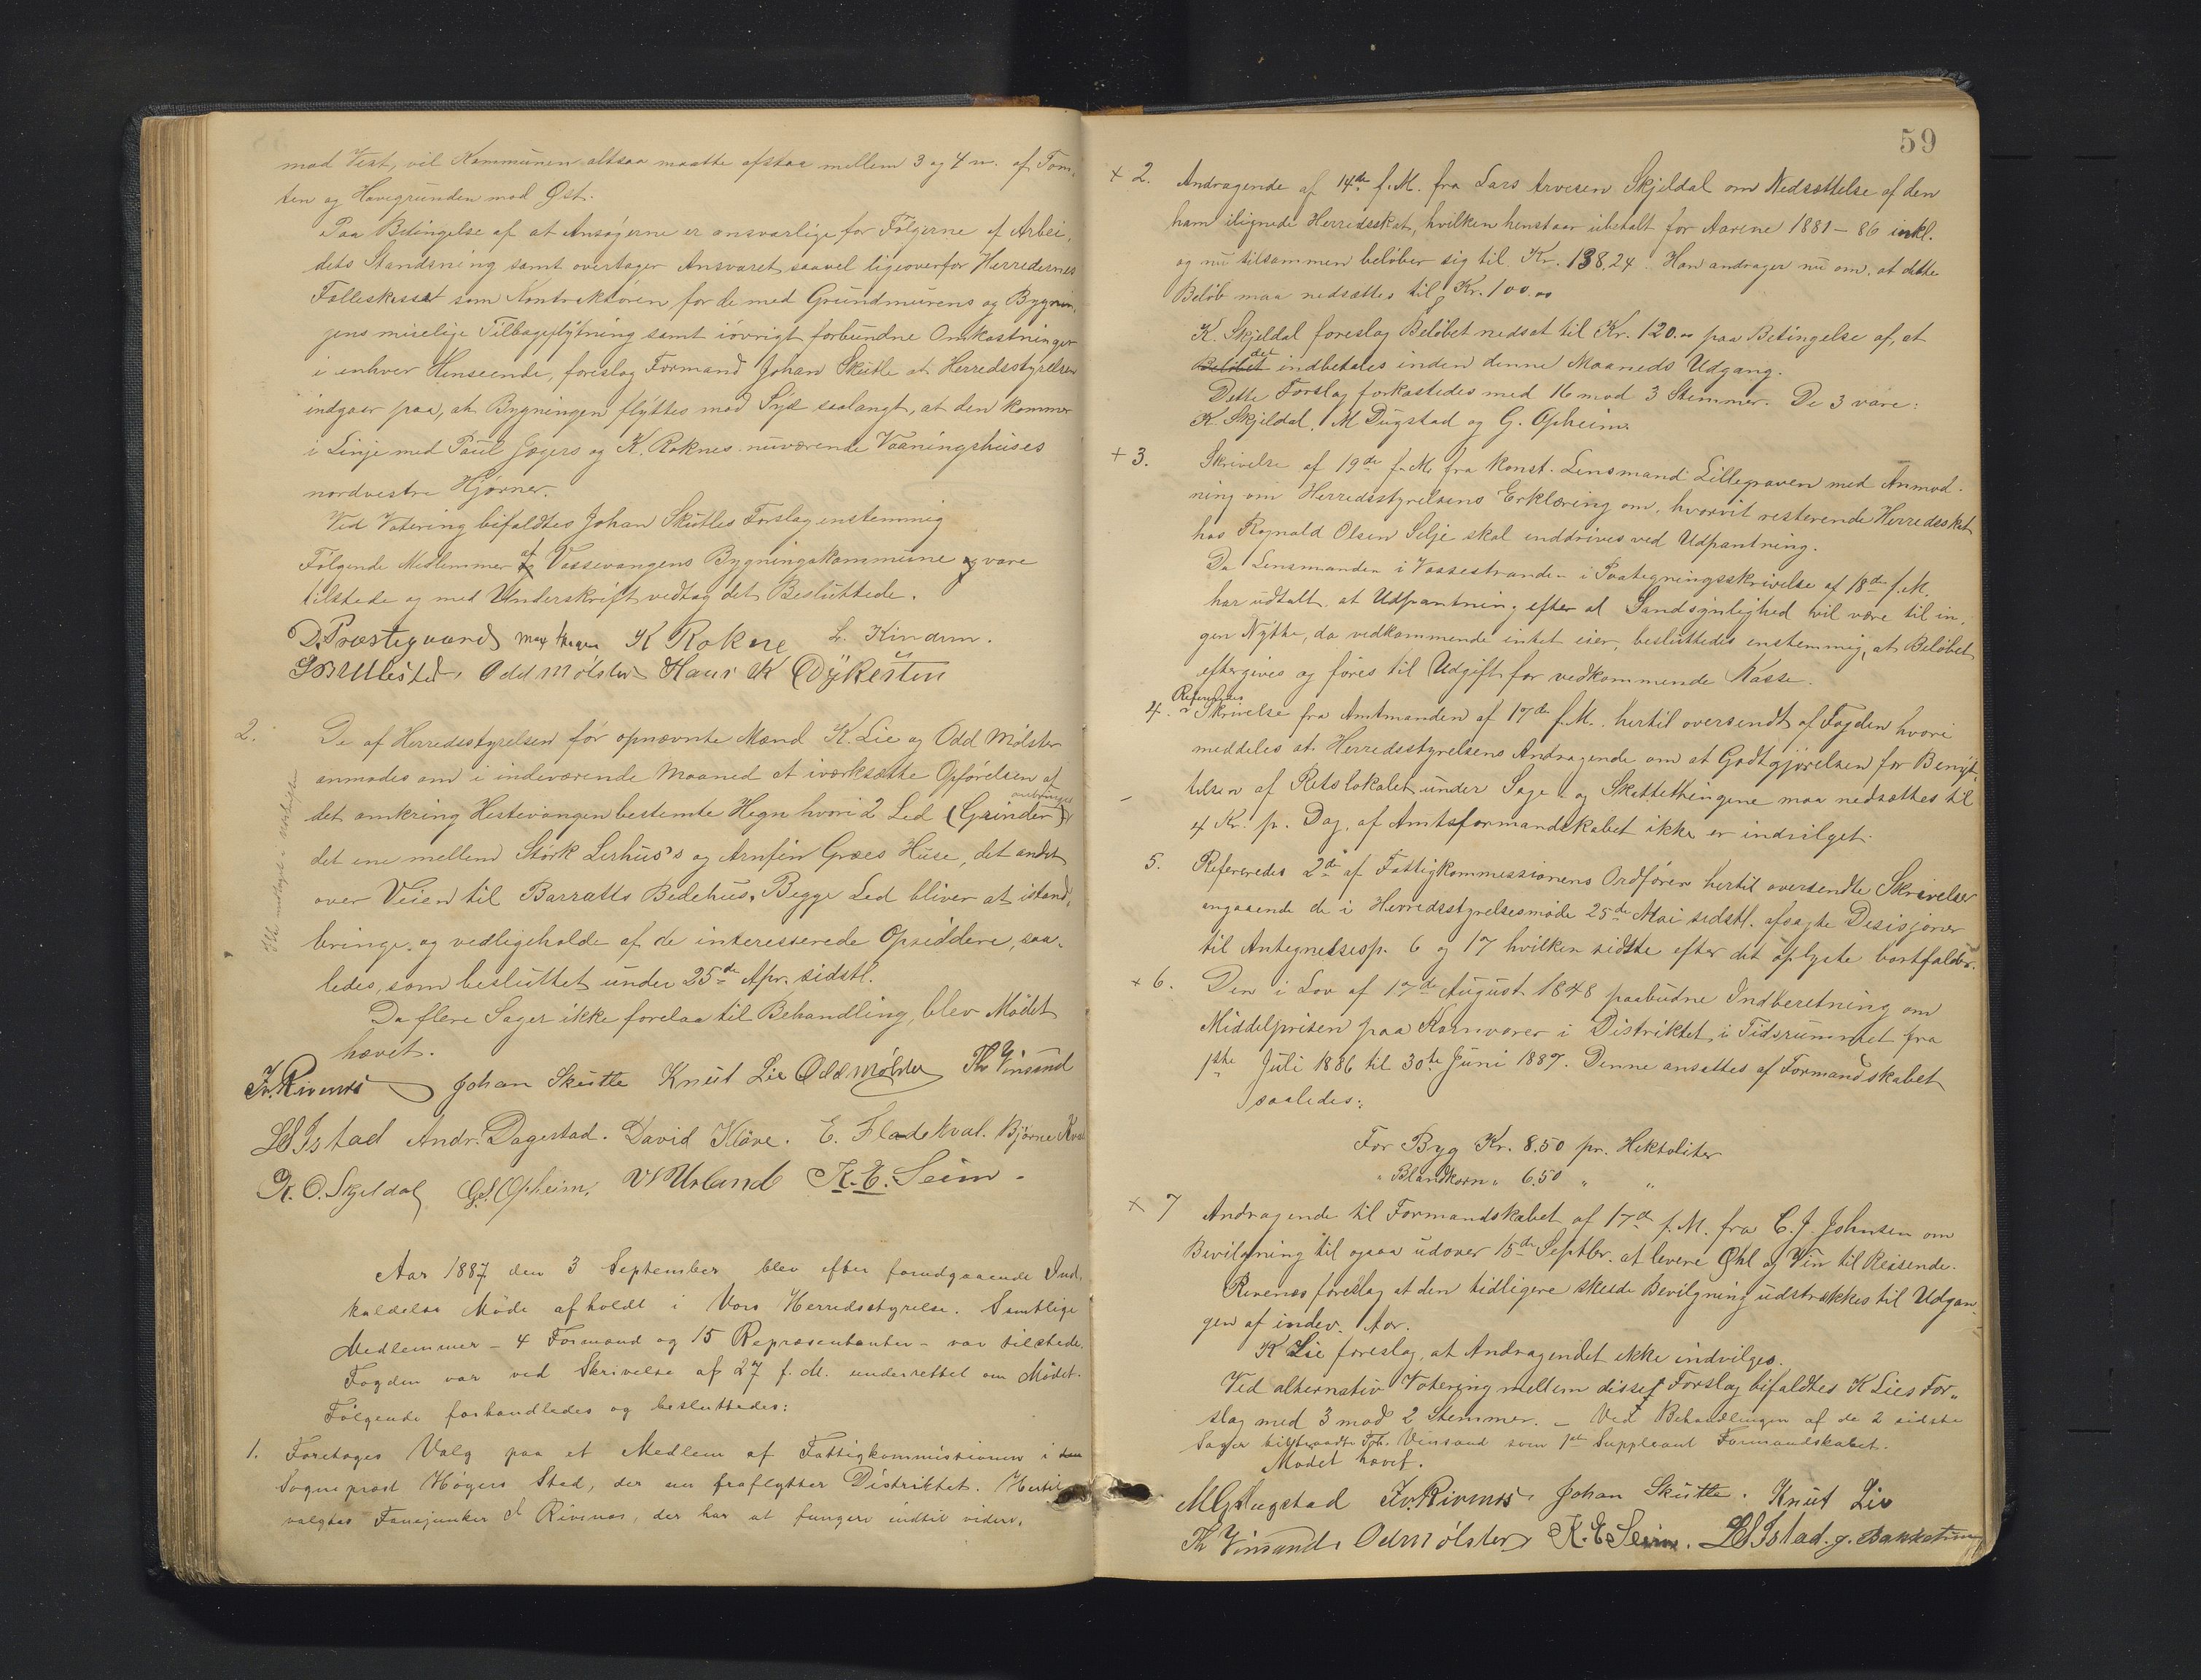 mod Vest, vil Kommunen altsaa maatte afstaa mellem 3 og 4 m. af Tom,
ten og Havegrunden mod Øst.
Paa Betingelse af at Ansøgerne er ansvarlige for Følgerne af Arbei,
dets Standsning samt overtager Ansvaret saavel ligeoverfor Herredernes
Fælleskasse som Kontraktøren for de med Grundmurens og Bygnin,
gens mulige Tilbageflytning samt iøvrigt forbundne Omkostninger
i enhver Henseende, foreslog Formand Johan Skutle at Herredsstyrelsen
indgaar paa, at Bygningen flyttes mod Syd saalangt, at den kommer
i Linje med Paul Gjøgers og K. Roknes nuværende Vaaningshuses
nordvestre Hjørner.
Ved Votering bifaldtes Johan Skutles Forslag enstemmig
Følgende Medlemmer af Vossevangens Bygningskommune vare
tilstede og med Underskrift vedtog det Besluttede.
D. Præstegaard K Rokne L. Kindem.
Odd Mølster Hans K Dykesten
2. De af Herredsstyrelsen før opnævnte Mænd K. Lie og Odd Mølster
anmodes om i indeværende Maaned at iværksætte Opførelsen af
det omkring Hestevangen bestemte Hegn hvori 2 Led (Grinder) anbringes
det ene mellem Størk Lerhus's og Arnfin Græes Huse, det andet
over Veien til Barratts Bedehus. Begge Led bliver at istand,
bringe og vedligeholde af de interesserede Opsiddere, saa,
ledes, som besluttet under 25de Apr. sidstl.
Da flere Sager ikke forelaa til Behandling, blev Mødet
hævet.
Iv. Rivenæs Johan Skutle Knut Lie Odd Mølster Th Vinsand
LB Istad Andr. Dagestad. David Kløve. E. Fladekval. Bjørne
K. O. Skjeldal G.S. Opheim. V Urland K. E. Seim.
Aar 1887 den 3 September blev efter forudgaaende Ind,
kaldelse Møde afholdt i Voss Herredsstyrelse. Samtlige
Medlemmer - 4 Formænd og 15 Repræsentanter - var tilstede.
Fogden var ved Skrivelse af 27 f. M. underrettet om Mødet.
Følgende forhandledes og besluttedes:
1. Foretoges Valg paa et Medlem af Fattigkommissionen i
Sogneprest Høyers Sted, der nu fraflytter Distriktet. Hertil
valgtes Fanejunker I Rivenæs, der har at fungere indtil videre.
59
+ 2. Andragende af 14de f. M. fra Lars Arvesen Skjeldal om Nedsættelse af den
ham ilignede Herredsskat, hvilken henstaar ubetalt for Aarene 1881 - 86 inkl.
og nu tilsammen beløber sig til Kr. 138,24. Han andrager nu om, at dette
Beløb maa nedsættes til Kr. 100.00
K. Skjeldal foreslog Beløbet nedsat til Kr. 120.00 paa Betingelse af, at
Beløbet det indbetales inden denne Maaneds Udgang.
Dette Forslag forkastedes med 16 mod 3 Stemmer. De 3 vare:
K. Skjeldal, M Dugstad og G. Opheim.
+ 3. Skrivelse af 19de f. M. fra konst. Lensmand Lillegraven med Anmod-
ning om Herredsstyrelsens Erklæring om, hvorvit resterende Herredsskat
hos Rognald Olsen Selje skal inddrives ved Udpantning.
Da Lensmanden i Vossestranden i Paategningsskrivelse af 18de f. M.
har udtalt, at Udpantning efter al Sandsynlighed vil være til in,
gen Nytte, da vedkommende intet eier, besluttedes enstemmig, at Beløbet
eftergives og føres til Udgift for vedkommende Kasse.
4. Refereredes Skrivelse fra Amtmanden af 17de f. M. hertil oversendt af Fogden hvori
meddeles at Herredsstyrelsens Andragende om at Godtgjørelsen for Benyt,
telsen af Retslokalet under Sage- og Skattethingene maa nedsættes til
4 Kr. p. Dag, af Amtsformandskabet ikke er indvilget.
5. Refereredes 2de af Fattigkommissionens Ordfører hertil oversendte Skrivelser
angaaende de i Herredsstyrelsesmøde 25de Mai sidstl. afsagte Desisjoner
til Antegnelsesp. 6 og 17 hvilken sidste efter det oplyste bortfalder.
+ 6. Den i Lov af 17de August 1848 paabudne Indberetning om
Middelprisen paa Kornvarer i Distriktet i Tidsrummet fra
1ste Juli 1886 til 30te Juni 1887. Denne ansattes af Formandskabet
saaledes:
For Byg Kr. 8.50 pr. Hektoliter
" Blandkorn " 6.50 " "
+ 7 Andragende til Formandskabet af 17de f. M. fra C. J. Johnsen om
Bevilgning til ogsaa udover 15de Septbr. at levere Øhl og Vin til Reisende.
Rivenæs foreslog at den tidligere skeede Bevilgning udstrækkes til Udgan,
gen af indev. Aar.
K Lie foreslog, at Andragendet ikke indvilges.
Ved alternativ Votering mellem disse Forslag bifaldtes K Lies For,,
slag med 3 mod 2 Stemmer. - Ved Behandlingen af de 2 sidste
Sager tiltraadte Th. Vinsand som 1ste Suppleant Formandskabet.
Mødet hævet.
M G Dugstad Iv. Rivenæs, Johan Skutle. Knut Lie
Th Vinsand Odd Mølster K. E Seim. LB Istad.